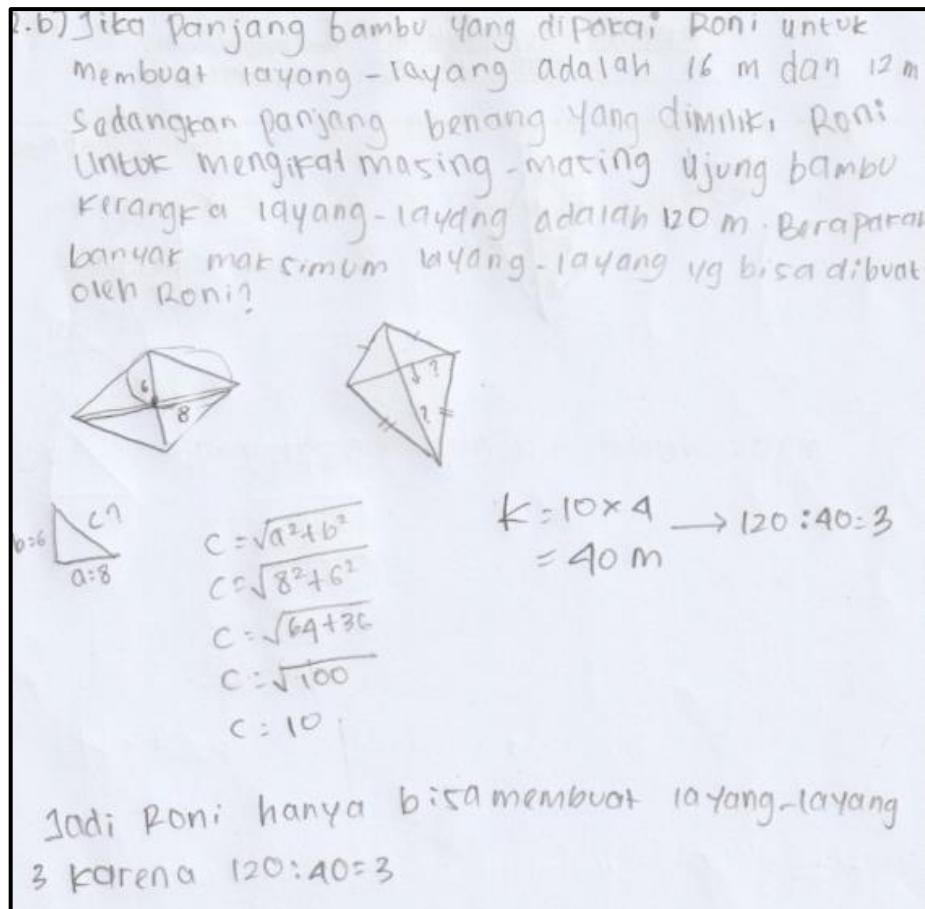 2.b) Jika Panjang bambu yang dipakai Roni untuk
membuat layang-layang adalah 16 m dan 12 m
Sedangkan panjang benang yang dimiliki Roni
Untuk mengikat masing-masing ujung bambu
kerangka layang-layang adalah 120 m. Berapakah
banyak maksimum layang-layang yg bisa dibuat
oleh Roni?
6
8
?
?
b=6
c?
a=8
C = √a²+b²
C = √8²+6²
C = √64+36
C = √100
C = 10
K = 10 x 4 → 120 : 40 = 3
= 40 m
Jadi Roni hanya bisa membuat layang-layang
3 karena 120 : 40 = 3